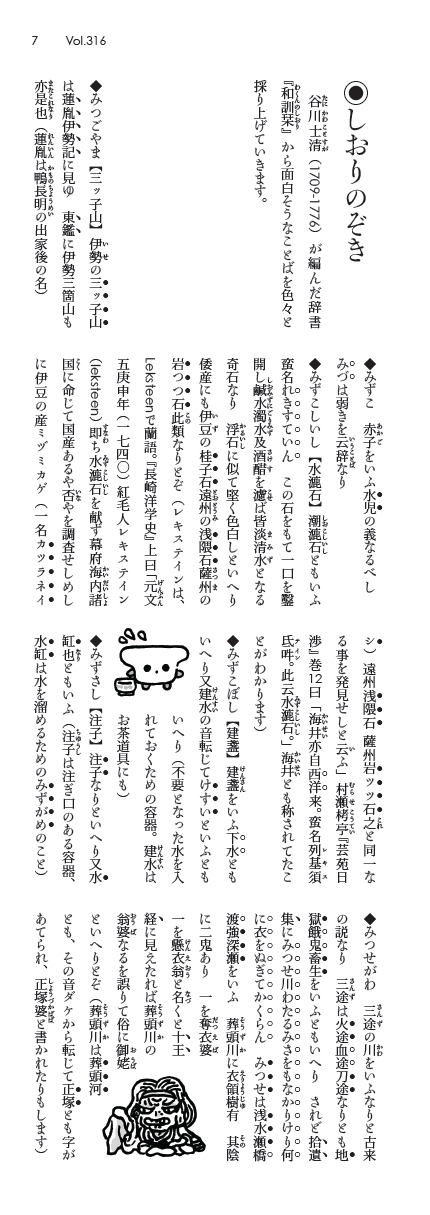 7
Vol.316
◉しおりのぞき
谷川士清（1709-1776）が編んだ辞書
『和訓栞』から面白そうなことばを色々と
採り上げていきます。
◆みつごやま【三ッ子山】伊勢の三ッ子山
は蓮胤伊勢記に見ゆ　東鑑に伊勢三箇山も
亦是也（蓮胤は鴨長明の出家後の名）
◆みずこ　赤子をいふ水児の義なるべし
みづは弱きを云辞なり
◆みずこしいし【水漉石】潮漉石ともいふ
蛮名れきすていん　この石をもて一口を鑿
開し鹹水濁水及酒醋を濾ば皆淡清水となる
奇石なり　浮石に似て堅く色白しといへり
倭産にも伊豆の桂子石遠州の浅隈石薩州の
岩つつ石此類なりとぞ（レキステインは、
Leksteenで蘭語。『長崎洋学史』上曰「元文
五庚申年（一七四〇）紅毛人レキステイン
（leksteen）即ち水漉石を献ず幕府海内諸
国に命じて国産あるや否やを調査せしめし
に伊豆の産ミヅミカゲ（一名カツラネイ
シ）遠州浅隈石　薩州岩ッッ石之と同一な
る事を発見せしと云ふ」村瀬栲亭『芸苑日
渉』巻12曰「海井亦自西洋来。蛮名列基須
氐吽。此云水漉石。」海井とも称されてたこ
とがわかります）
◆みずこぼし【建盞】建盞をいふ下水とも
いへり又建水の音転じてけすいといふとも
いへり（不要となった水を入
れておくための容器。建水は
お茶道具にも）
◆みずさし【注子】注子なりといへり又水
缸也ともいふ（注子は注ぎ口のある容器、
水缸は水を溜めるためのみずがめのこと）
◆みつせがわ　三途の川をいふなりと古来
の説なり　三途は火途血途刀途なりとも地
獄餓鬼畜生をいふともいへり　されど拾遺
集にみつせ川わたるみさをもなかりけり何
に衣をぬぎてかくらん　みつせは浅水瀬橋
渡強深瀬をいふ　葬頭川に衣領樹有　其陰
に二鬼あり　一を奪衣婆
一を懸衣翁と名つくと十王
経に見えたれば葬頭川の
翁婆なるを誤りて俗に御姥
といへりとぞ（葬頭川は葬頭河
とも、その音ダケから転じて正塚とも字が
あてられ、正塚婆と書かれたりもします）